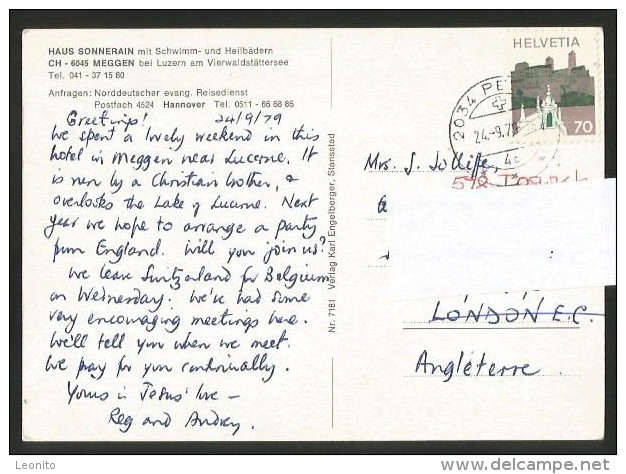 HAUS SONNERAIN mit Schwimm- und Heilbädern
CH - 6045 MEGGEN bei Luzern am Vierwaldstättersee
Tel. 041 - 37 15 80
Anfragen: Norddeutscher evang. Reisedienst
Postfach 4524 Hannover Tel. 0511 - 66 68 86
Greetings! 24/9/79
We spent a lovely weekend in this
hotel in Meggen near Lucerne. It
is run by a Christian brother, &
overlooks the Lake of Lucerne. Next
year we hope to arrange a party
from England. Will you join us?
We leave Switzerland for Belgium
on Wednesday. We've had some
very encouraging meetings here.
We'll tell you when we meet.
We pray for you continually.
Yours in Jesus' love —
Reg and Audrey.
Nr. 7181 Verlag Karl Engelberger, Stansstad
HELVETIA
70
2034 PE
24.-9.79
Mrs. J. Jolliffe,
LONDON E.C.
Angleterre.
Leonito
www.delcampe.net